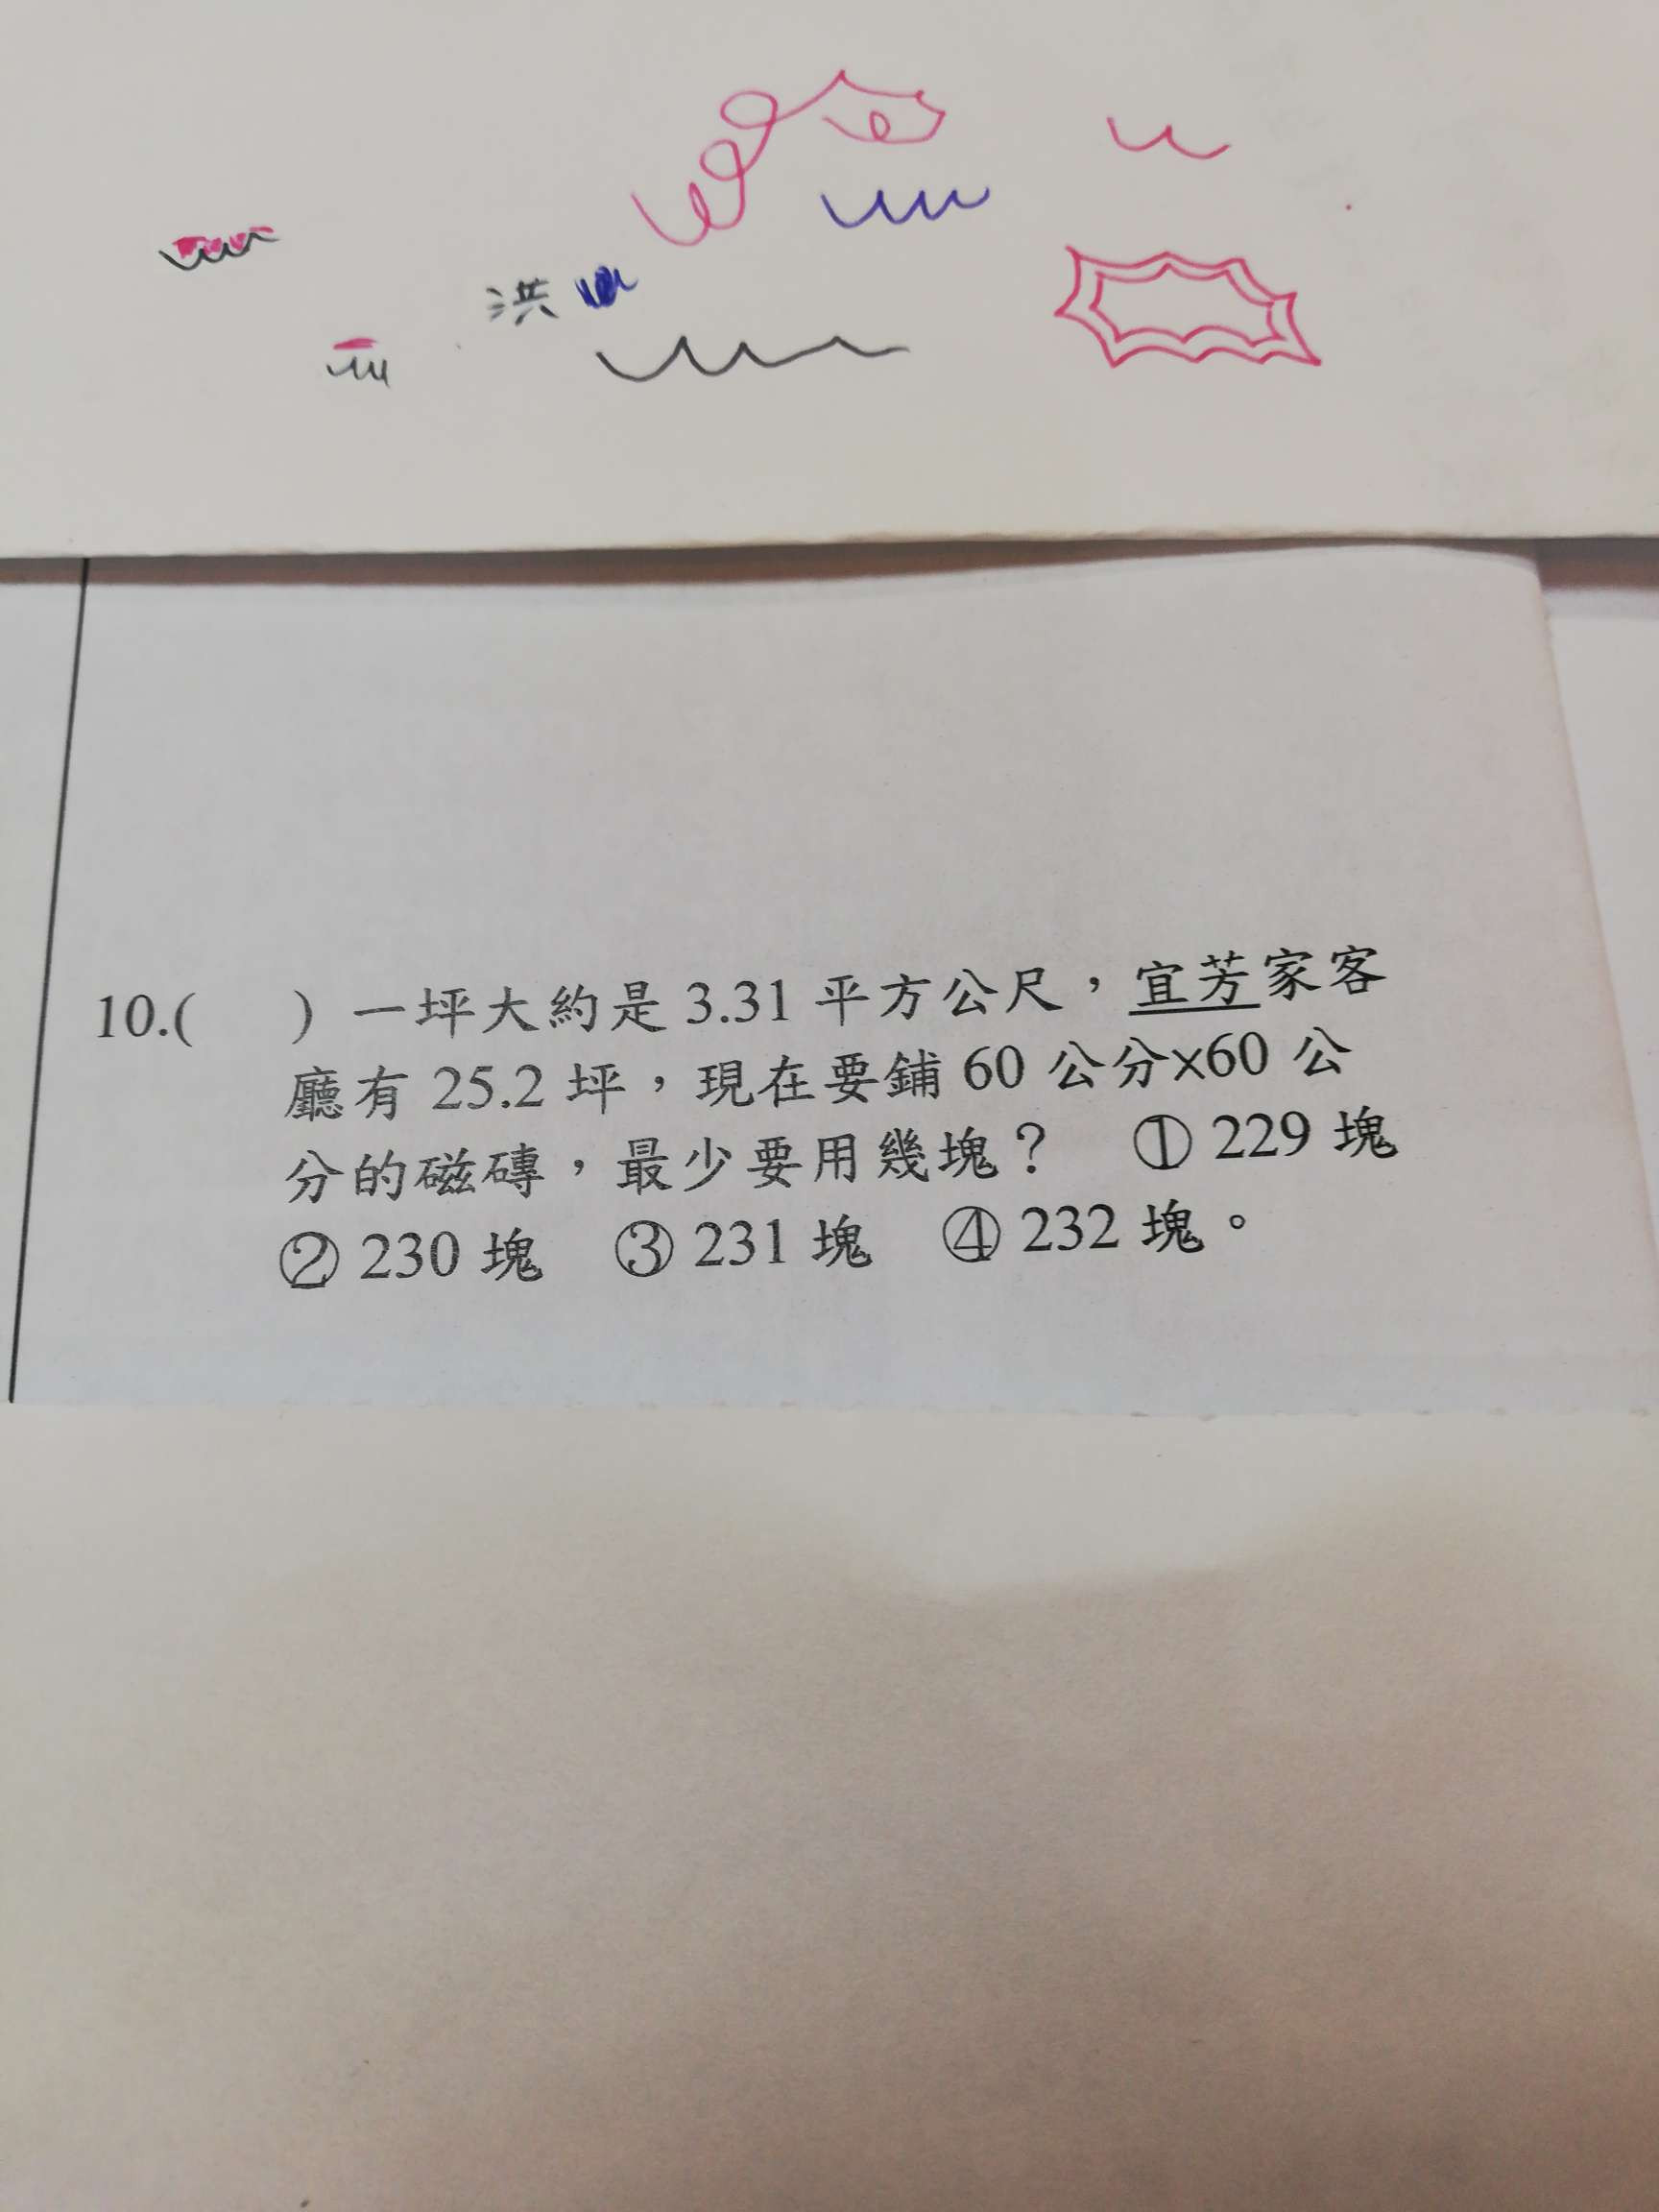 洪
10.(　) 一坪大約是 3.31 平方公尺，宜芳家客
廳有 25.2 坪，現在要鋪 60 公分×60 公
分的磁磚，最少要用幾塊？ ① 229 塊
② 230 塊 ③ 231 塊 ④ 232 塊。